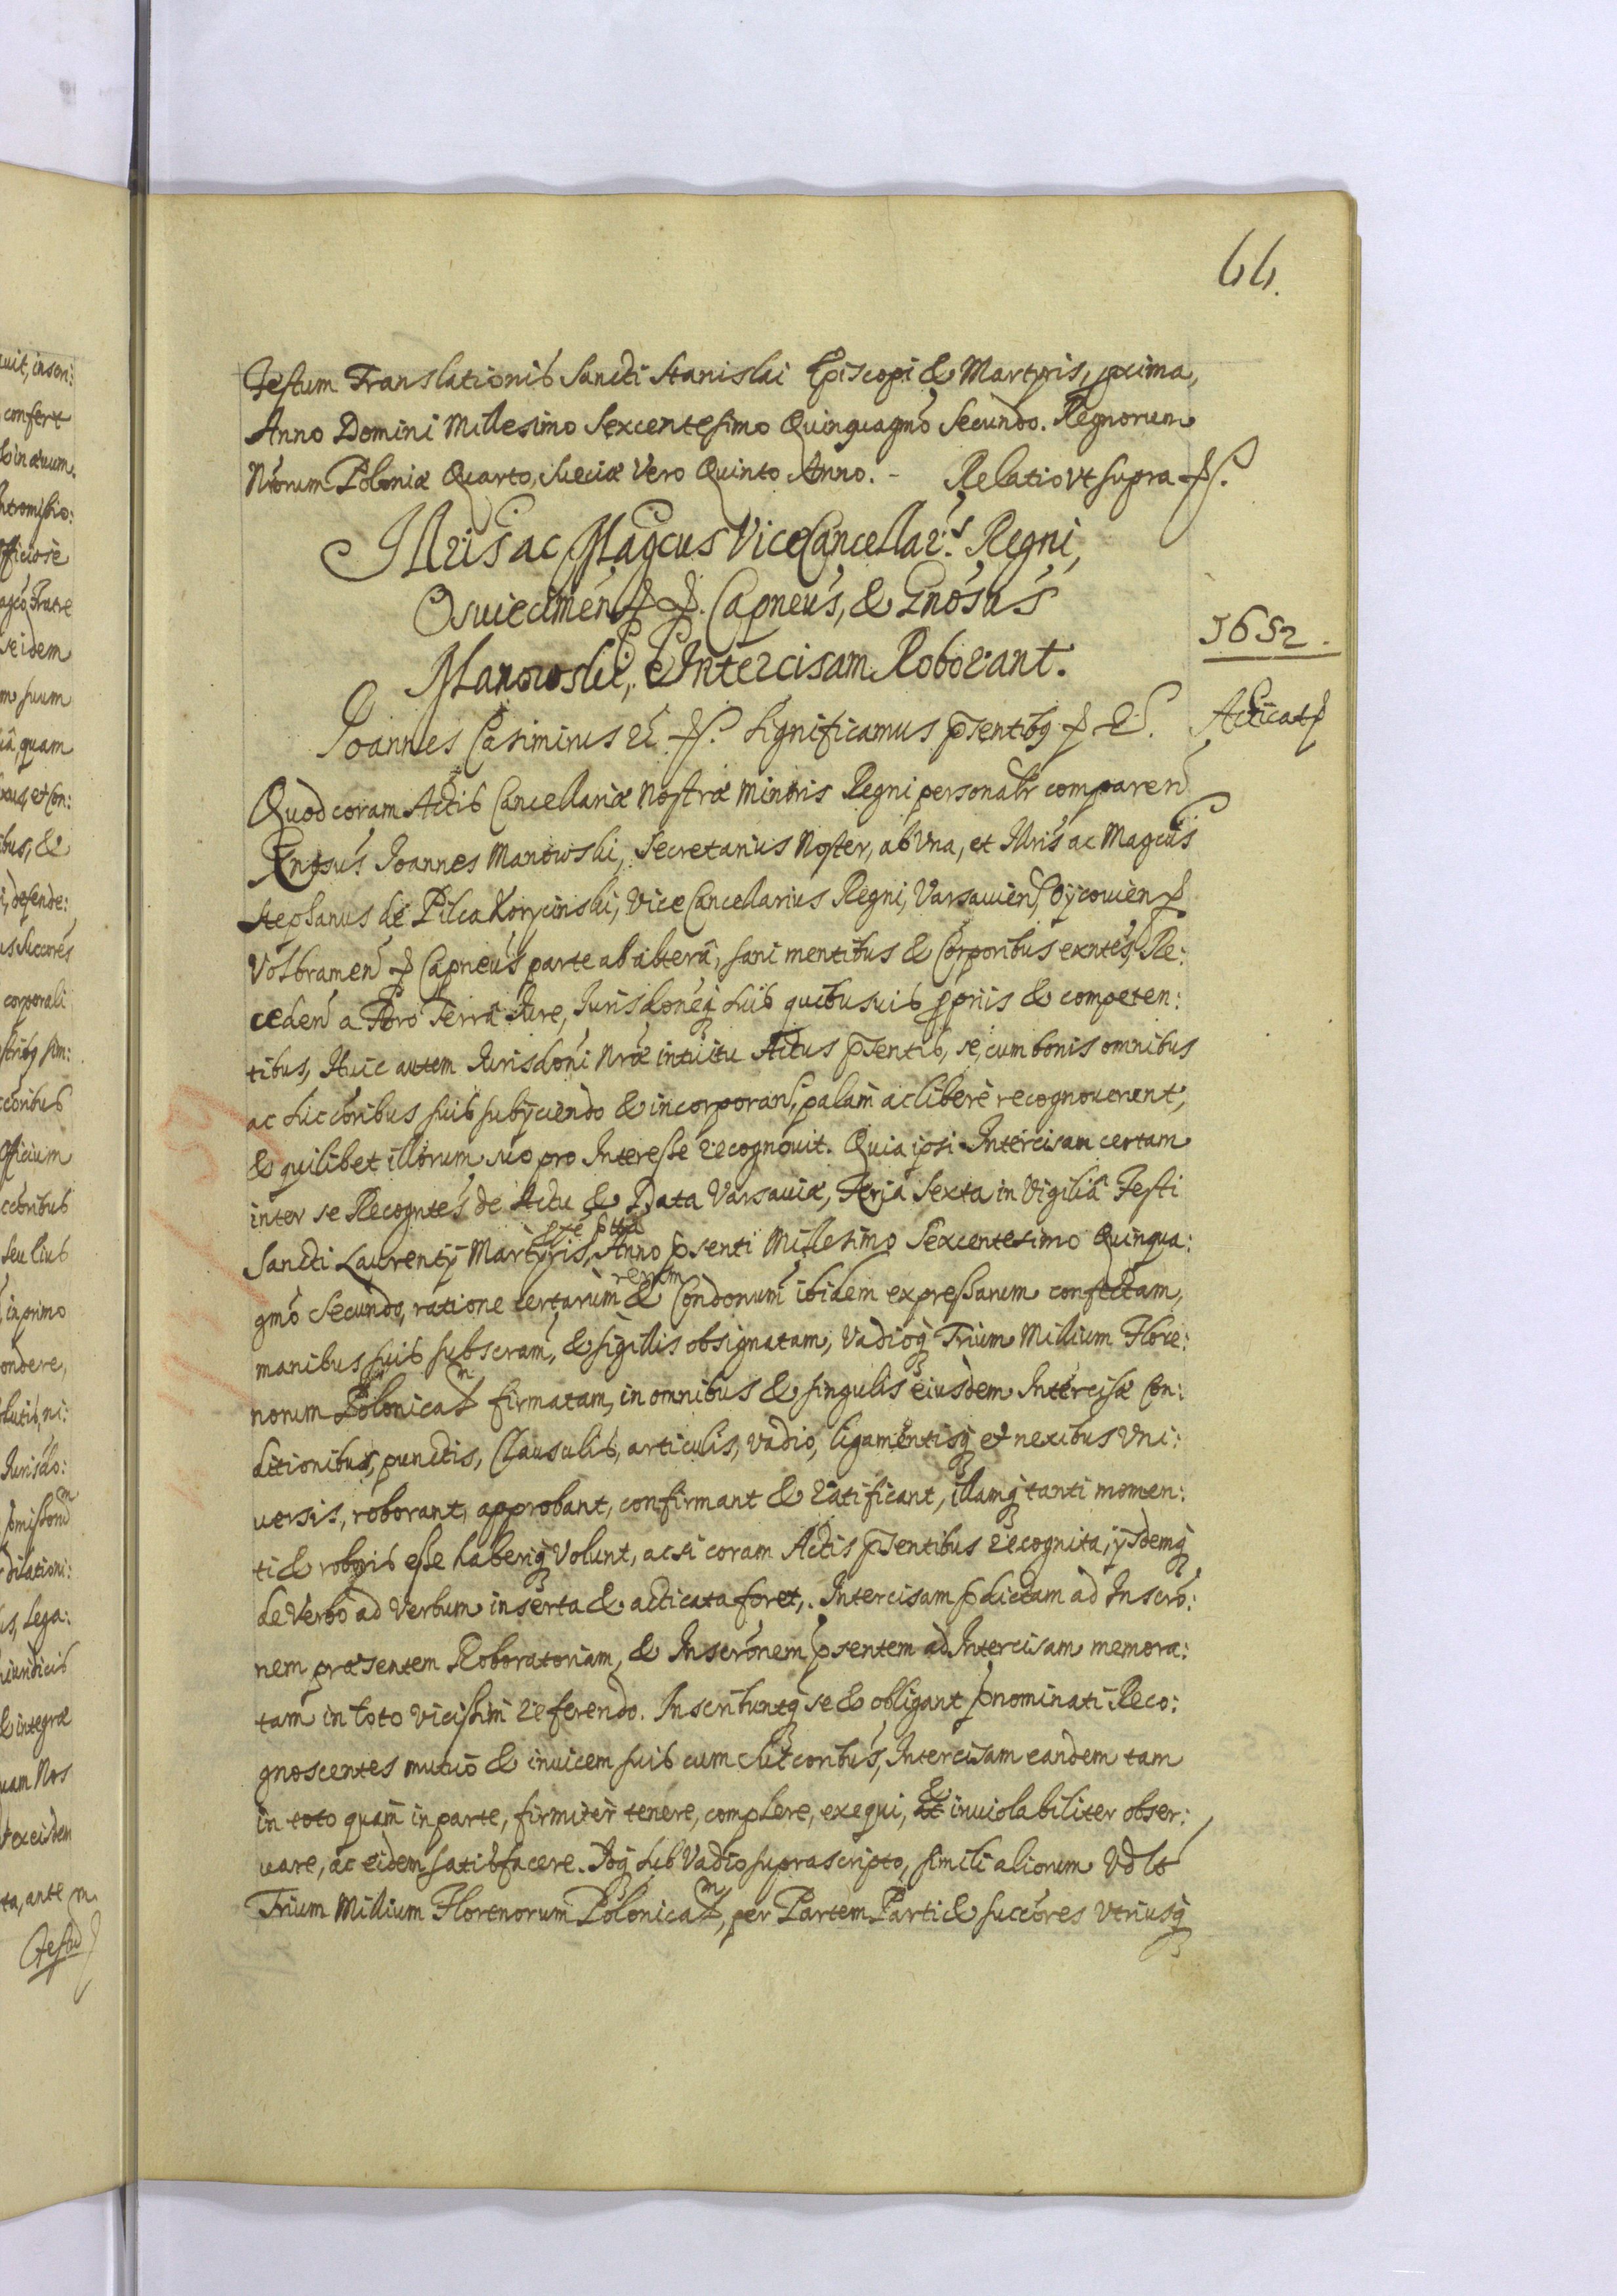 66.
Festum Translationis Sancti Stanislai Episcopi & Martyris, pxima,
Anno Domini Millesimo Sexcentesimo Quinquagmo Secundo. Regnorum
Nrorum Poloniæ Quarto, Sueciæ Vero Quinto Anno. - Relatio vt supra
Illris ac Magcus ViceCancellar's Regni,
Osuiecimen Capneus, & Gnosus
Manowski, Intercisam Roborant.
1652.
Joannes Casimirus Significamus psentibq
Acticat
Quod coram Actis Cancellariæ Nostræ Minoris Regni personalr comparen
Gnosus Joannes Manowski, Secretarius Noster, ab Vna, et Illris ac Magcus
Stephanus de Pilca Koryciński, Vice Cancellarius Regni, Varsauien, Oÿcouien
Volbramen Capneus parte ab altera, sani mentibus & Corporibus exntes, Re:
ceden a Foro Terra Iure, Iurisdoneq Suis quibusuis ppriis & competen:
tibus, Huic autem Iurisdoni Nræ intuitu Actus psentis, se, cum bonis omnibus
ac Succoribus suis subÿciendo & incorporan, palam ac libere recognouerunt,
& quilibet illorum suo pro Interesse recognouit. Quia ipsi Intercisam certam
inter se Recogntes de Actu & Data Varsauiæ, Feria Sexta in Vigilia Festi
Sancti Laurentÿ Martyris, Anno psenti Millesimo Sexcentesimo Quinqua:
rerum
gmo Secundo, ratione certarum & Condonum ibidem expressarum confectam,
manibus suis subscram, & sigillis obsignatam, Vadioq Trium Millium Flore:
norum Polonical m firmatam, in omnibus & singulis eiusdem Intercisæ Con:
ditionibus, punctis, Clausulis, articulis, vadio, ligamentisq et nexibus Vni:
uersis, roborant, approbant, confirmant & ratificant, illamq tanti momen:
ti & roboris esse haberiq Volunt, ac si coram Actis psentibus recognita, ÿsdemq
de Verbo ad Verbum inserta & acticata foret, Intercisam pdictam ad Inscro:
nem præsentem Roboratoriam, & Inscronem psentem ad Intercisam memora:
tam in toto vicissim referendo. Inscribuntq se & obligant pnominati Reco:
gnoscentes mutuo & inuicem suis cum Succoribus, Intercisam eandem tam
in toto quam in parte, firmiter tenere, complere, exequi, & inuiolabiliter obser:
uare, ac eidem satisfacere. Idq sub Vadio suprascripto, simili aliorum Vdlt
Trium Millium Florenorum Polonical m, per Partem Parti & succores Vtriusq